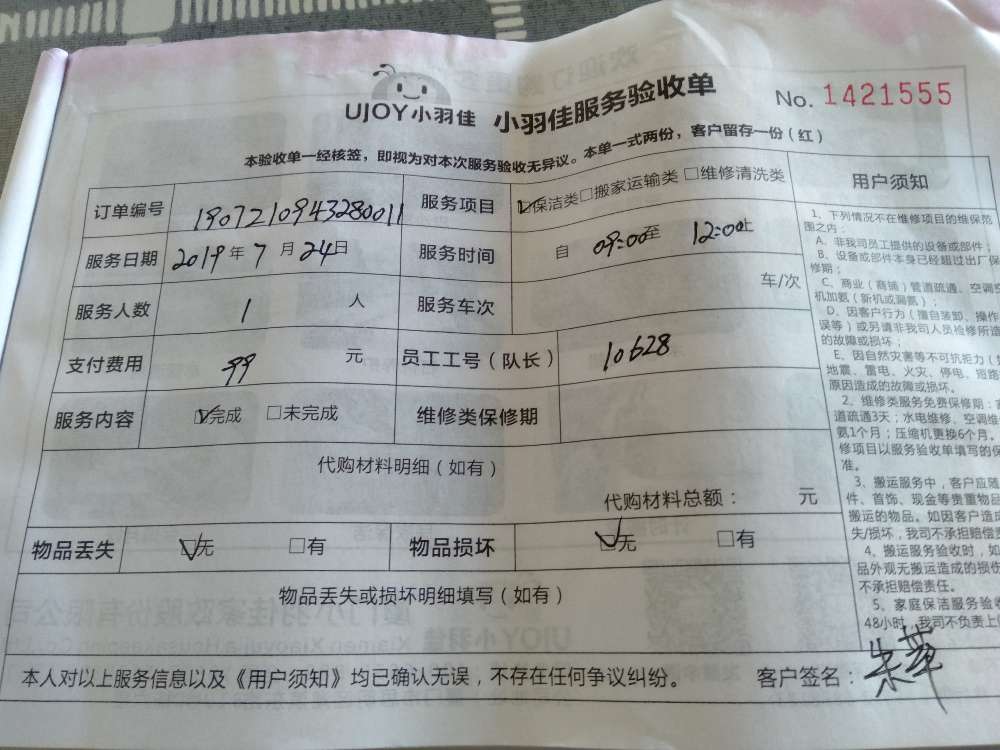 UJOY小羽佳 小羽佳服务验收单 No. 1421555
本验收单一经核签，即视为对本次服务验收无异议。本单一式两份，客户留存一份（红）
订单编号 1907210943280011 服务项目 ☑保洁类□搬家运输类□维修清洗类
服务日期 2019年7月24日 服务时间 自 09:00至 12:00止
服务人数 1 人 服务车次 车/次
支付费用 99 元 员工工号（队长） 10628
服务内容 ☑完成 □未完成 维修类保修期
代购材料明细（如有）
代购材料总额： 元
物品丢失 ☑无 □有 物品损坏 ☑无 □有
物品丢失或损坏明细填写（如有）
本人对以上服务信息以及《用户须知》均已确认无误，不存在任何争议纠纷。 客户签名：
用户须知
1、下列情况不在维修项目的维保范
围之内：
A、非我司员工提供的设备或部件；
B、设备或部件本身已经超过出厂保
修期；
C、商业（商铺）管道疏通、空调空
机加氨（新机或漏氨）；
D、因客户行为（擅自装卸、操作
误等）或另请非我司人员检修所造
的故障或损坏；
E、因自然灾害等不可抗拒力（如
地震、雷电、火灾、停电、短路
原因造成的故障或损坏。
2、维修类服务免费保修期：
道疏通3天；水电维修、空调维
氨1个月；压缩机更换6个月。
修项目以服务验收单填写的保
准。
3、搬运服务中，客户应随
件、首饰、现金等贵重物品
搬运的物品。如因客户造成
失/损坏，我司不承担赔偿责
4、搬运服务验收时，如
品外观无搬运造成的损伤
不承担赔偿责任。
5、家庭保洁服务验收
48小时，我司不负责上